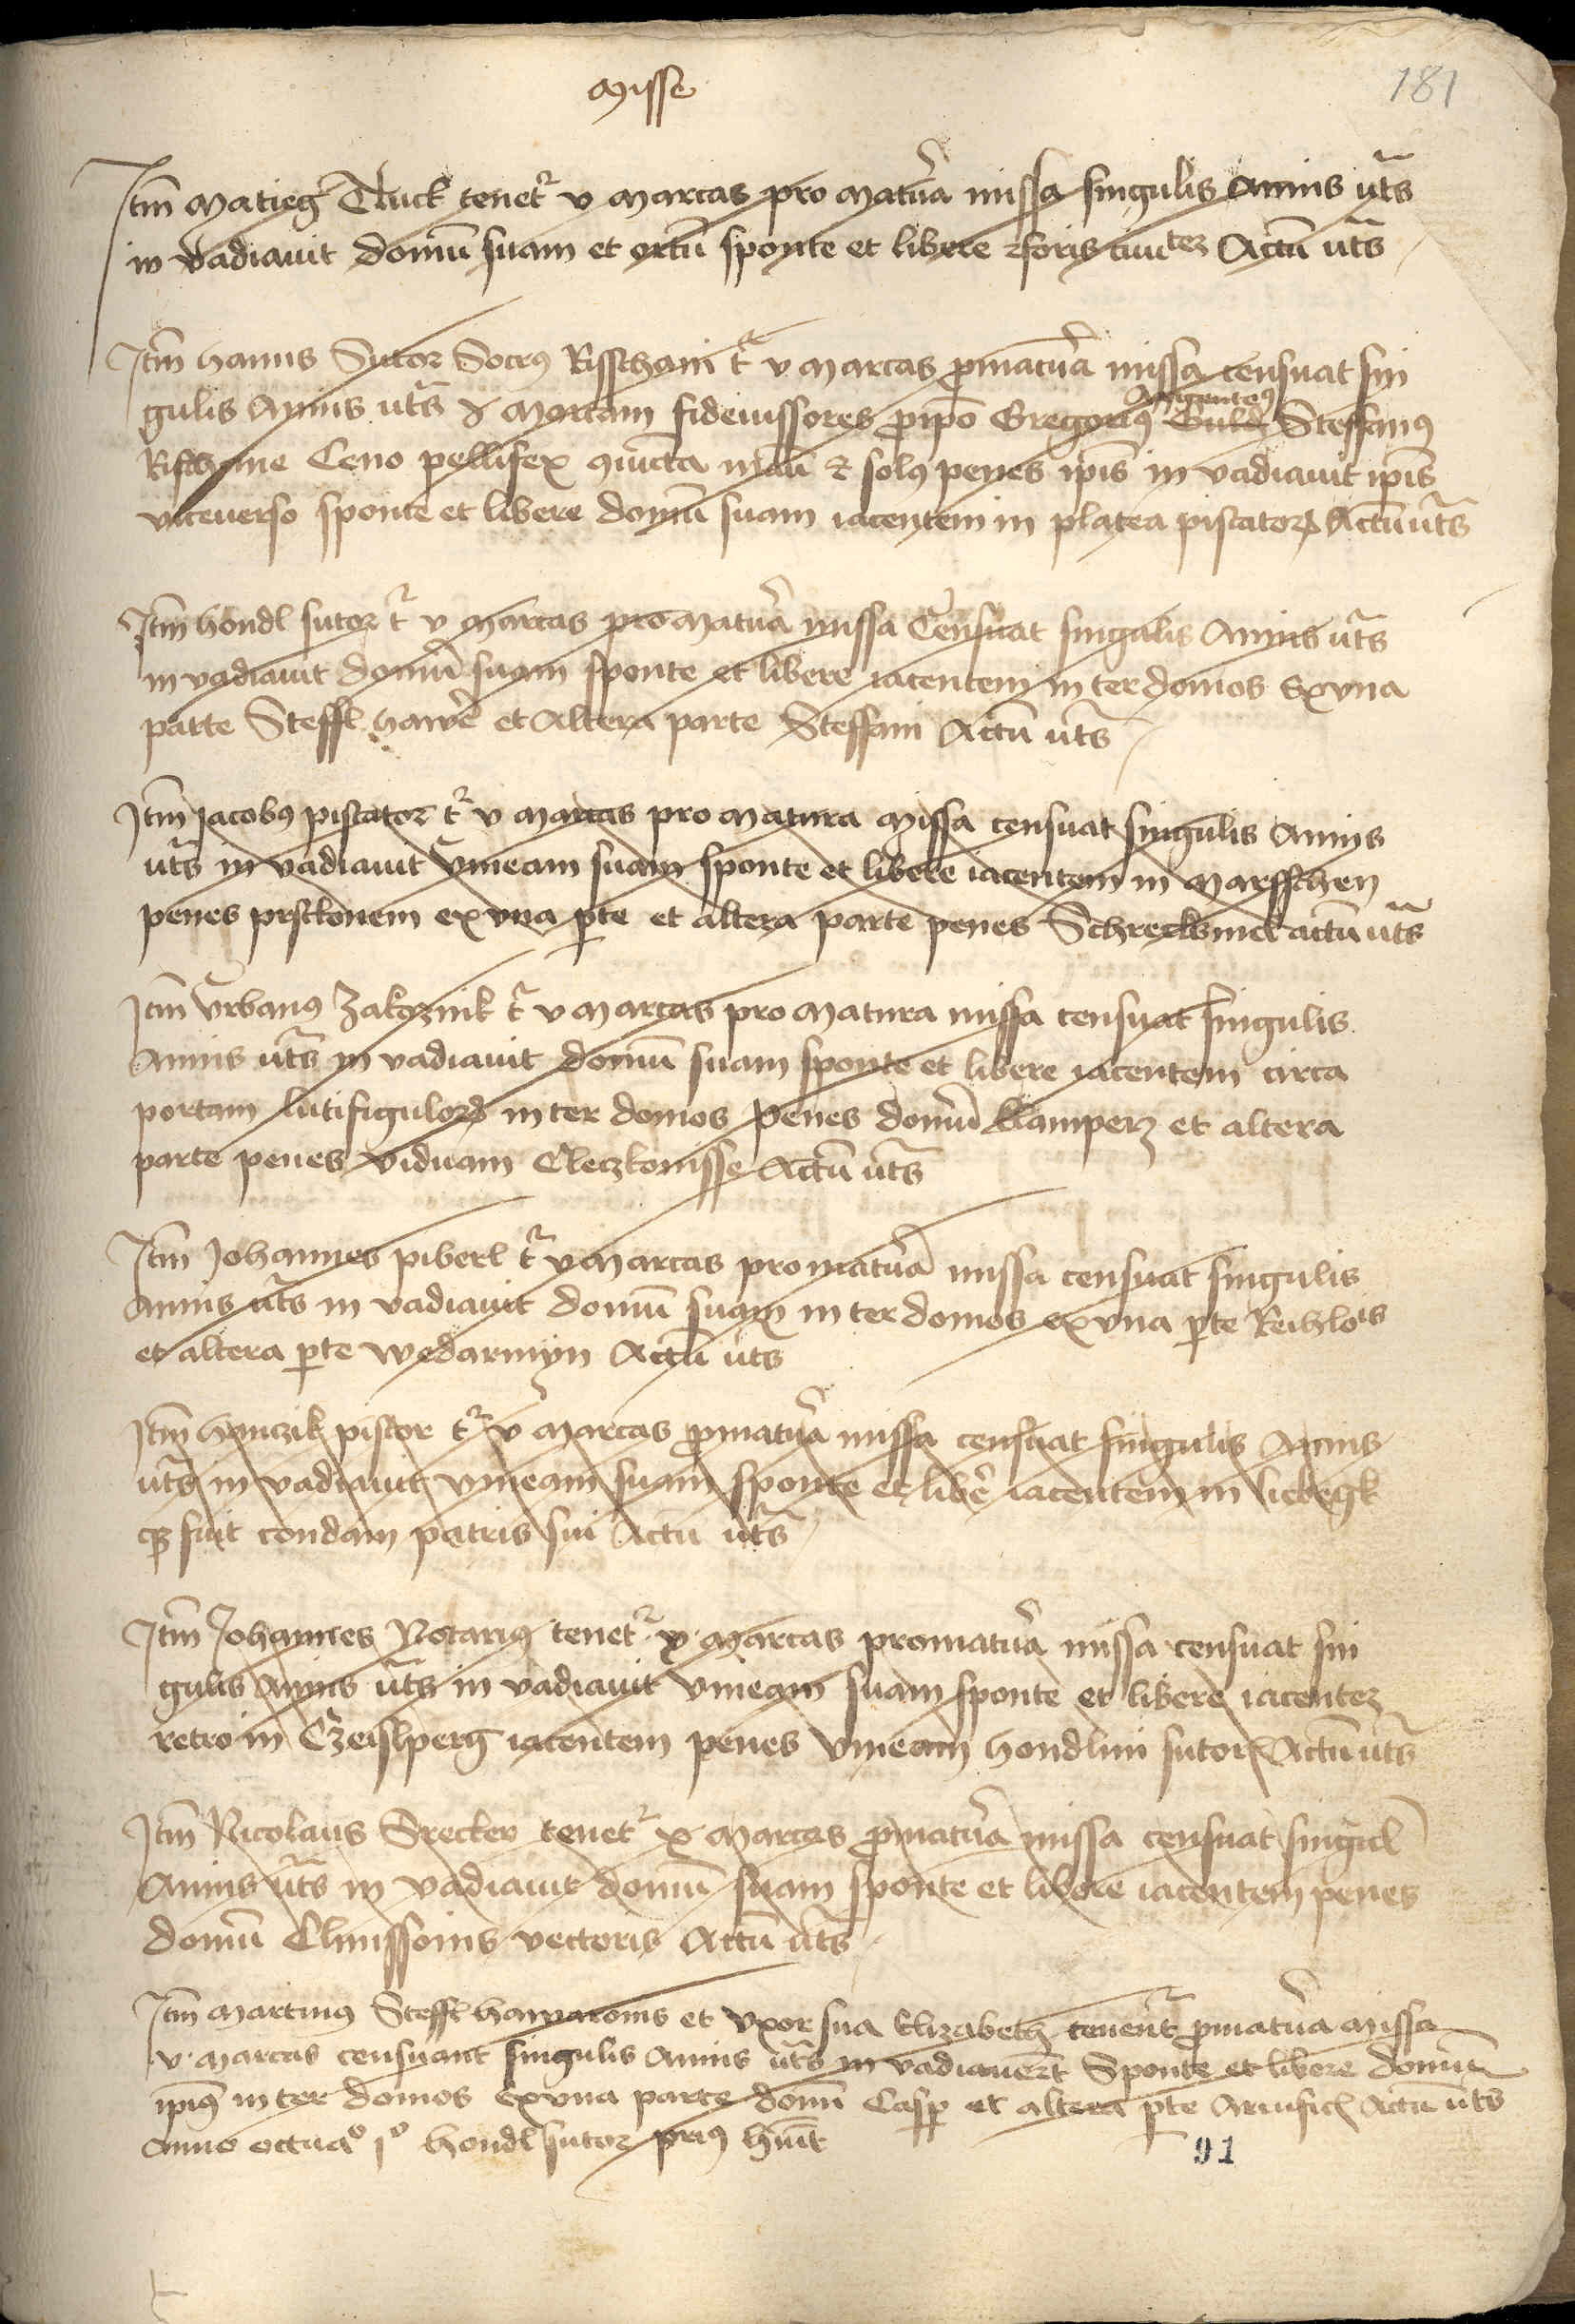 Misse
181
Itm Matieg Tluck tenetr v marcas pro matura missa singulis Annis uts
in vadiavit domū suam et ortū sponte et libere foris Actū uts
Itm hanus Sutor Socrus Risschani tr v marcas p matura missa censuat sin
gulis Annis uts marcam fideiussores p ipō Gregorius Argenteus Steffanus
Rischane Ceno pellifex qiuncta manū solus penes ipīs in vadiavit ipīs
viceverso sponte et libere domū suam iacentem in platea piscatorum Actū uts
Itm hondl sutor tr v marcas pro matura missa Censuat singulis Annis uts
in vadiavit domū suam sponte et libere iacentem in ter domos ex vna
parte Steffl hawere et Altera parte Steffani Actū uts
Itm Jacobus piscator tr v marcas pro matura missa censuat singulis Annis
uts in vadiavit vineam suam sponte et libere iacentem in Marsschen
penes ex vna pte et altera parte penes actū uts
Itm vrbanus Zakoznik tr v marcas pro matura missa censuat singulis
Annis uts in vadiavit domū suam sponte et libere iacentem circa
portam lutifigulorum in ter domos penes domū Kamperz et altera
parte penes viduam Cleczkonisse Actū uts
Itm Johannes piberl tr v marcas pro matura missa censuat singulis
Annis uts in vadiavit domū suam in ter domos ex vna pte
et altera pte wedarmyn Actū uts
Itm hanczik pistor tr v marcas p matura missa censuat singulis Annis
uts in vadiavit vineam suam sponte et libere iacentem in liebegk
q fuit condam patris sui Actū uts
Itm Johannes Notarius tenetr v marcas pro matura missa censuat sin
gulis Annis uts in vadiavit vineam suam sponte et libere iacentez
retro in Czeislperg iacentem penes vineam hondlini sutoris Actū uts
Itm Nicolaus Srecker tenetr x marcas p matura missa censuat singul
Annis uts in vadiavit domū suam sponte et libere iacentem penes
domū Clinissonis vectoris Actū uts
Itm Martinus Steffl hawaronis et vxor sua Elizabeth tenent p matura missa
v marcas censuant singulis Annis uts in vadiaverūt Sponte et libere domū
ipius in ter domos ex vna parte domū Casp et altera pte Actū uts
Anno octuao io hondl sutor prius hūit
91